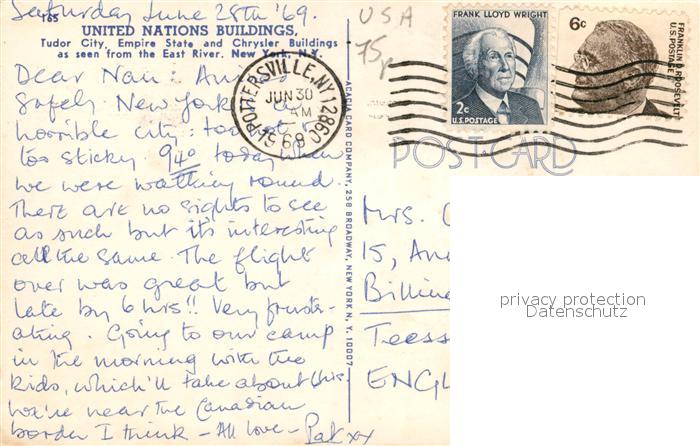 Saturday June 28th '69.
165
UNITED NATIONS BUILDINGS,
Tudor City, Empire State and Chrysler Buildings
as seen from the East River. New York, N.Y.
Dear Nan: 
safely. New York
horrible city: too hot &
too sticky 94° today when
we were walking round.
There are no sights to see
as such but it's interesting
all the same. The flight
over was great but
late by 6 hrs!! Very frustr-
ating. Going to our camp
in the morning with the
kids, which'll take about 6hrs.
We're near the Canadian
border I think - All love - Pat xx
POTTERSVILLE, N.Y. 12860
JUN 30
AM
1969
ACACIA CARD COMPANY, 258 BROADWAY, NEW YORK N. Y. 10007
USA
75p
FRANK LLOYD WRIGHT
2c
U.S. POSTAGE
6c
FRANKLIN D. ROOSEVELT
U.S. POSTAGE
POST CARD
Mrs.
15,
Billin
Teess
ENGL
privacy protection
Datenschutz